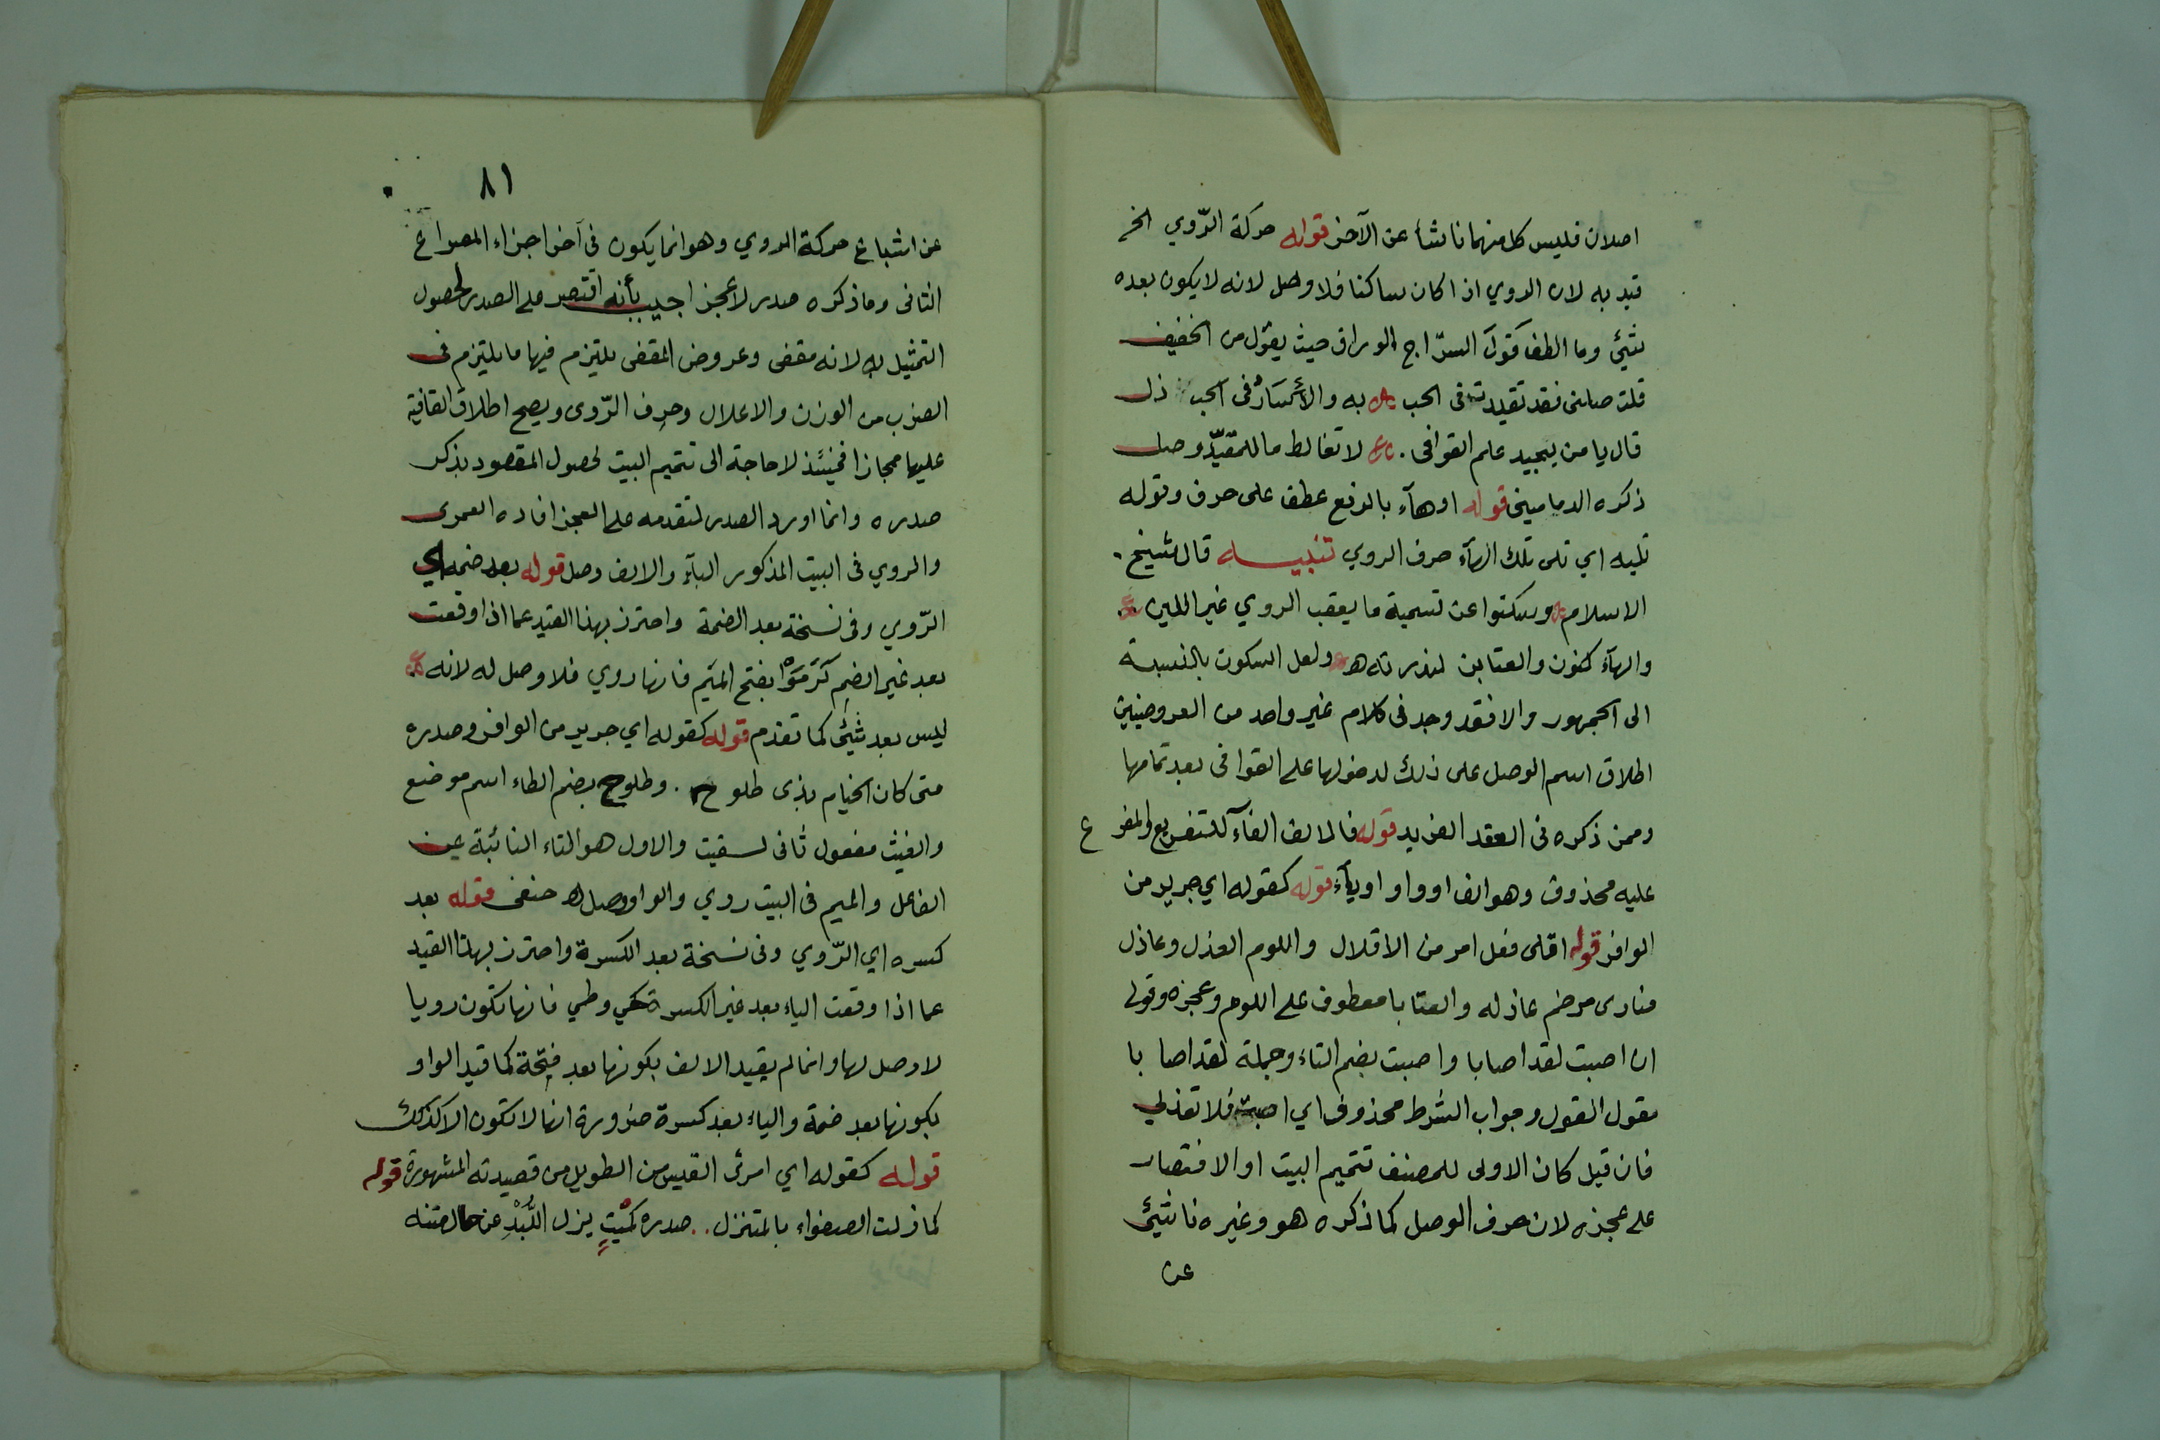 اصلان فليس كل منهما ناشئا عن الآخر قوله حركة الرّوي الخ
قيد به لان الروي اذا كان ساكنا فلا وصل لانه لا يكون بعده
شئ وما الطف قول السرّاج الوراق حيث يقول من الخفيف
قلت صلنى فقد تقيدت فى الحب به والأسَارُ فى الحب ذل
قال يا من يجيد علم القوافى . لا تغالط ما للمقيّد وصل
ذكره الدمامينى قوله او هآء بالرفع عطف على حرف وقوله
تليه اي تلى تلك الهآء حرف الروي تنبيــه قال شيخ
الاسلام وسكتوا عن تسمية ما يعقب الروي غير اللين
والهآء كنون والعتابن لندرته ولعل السكوت بالنسبة
الى الجمهور والا فقد وجد فى كلام غير واحد من العروضيين
اطلاق اسم الوصل على ذلك لدخولها على القوافى بعد تمامها
وممن ذكره فى العقد الفريد قوله فالالف الفآء للتفريع والمفرع
عليه محذوف وهو الف او واو او يآء قوله كقوله اي جرير من
الوافر قوله اقلى فعل امر من الاقلال واللوم العذل وعاذل
منادى مرخم عاذله والعتابا معطوف على اللوم وعجزه وقولى
ان اصبت لقد اصابا واصبت بضم التاء وجملة لقد اصابا
مقول القول وجواب الشرط محذوف اي اصبت فلا تعذلى
فان قيل كان الاولى للمصنف تتميم البيت او الاقتصار
على عجزه لان حرف الوصل كما ذكره هو وغيره ناشئ
عن
٨١
عن اشباع حركة الروي وهو انما يكون فى آخر اجزاء المصراع
الثانى وما ذكره صدر لا عجز اجيب بأنه اقتصر على الصدر لحصول
التمثيل به لانه مقفى وعروض المقفى يلتزم فيها ما يلتزم فى
الضرب من الوزن والاعلال وحرف الرّوى ويصح اطلاق القافية
عليها مجازا فحينئذ لا حاجة الى تتميم البيت لحصول المقصود بذكر
صدره وانما اورد الصدر لتقدمه على العجز افاده العمرى
والروي فى البيت المذكور البآء والالف وصل قوله بعد ضمه اي
الرّوي وفى نسخة بعد الضمة واحترز بهذا القيد عما اذا وقعت
بعد غير الضم كَرَمَوْا بفتح الميم فانها روي فلا وصل له لانه
ليس بعد شئ كما تقدم قوله كقوله اي جرير من الوافر وصدره
متى كان الخيام بذى طلوح . وطلوح بضم الطاء اسم موضع
والغيث مفعول ثانى لسقيت والاول هو التاء النائبة عن
الفاعل والميم فى البيت روي والواو وصل اهـ حنفى قوله بعد
كسره اي الرّوي وفى نسخة بعد الكسرة واحترز بهذا القيد
عما اذا وقعت الياء بعد غير الكسرة كحي وطي فانها تكون رويا
لا وصل لها وانما لم يقيد الالف بكونها بعد فتحة كما قيد الواو
بكونها بعد ضمة والياء بعد كسرة ضرورة انها لا تكون الا كذلك
قوله كقوله اي امرئ القيس من الطويل من قصيدته المشهورة قوله
كما زلت الصفواء بالمتنزل .. صدره كُمَيْتٍ يزل اللُّبْدِ عن حال متنه